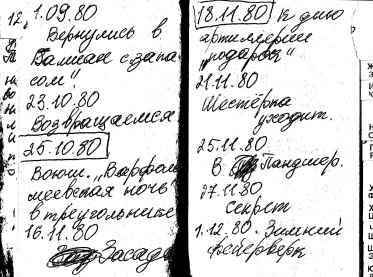 12, 1.09.80
Вернулись в
Бамиан с запа
сом!
23.10.80
Возвращаемся
25.10.80
Воюш. „Варфол
меевская ночь
в треугольнике
16.11.80
Засада
18.11.80 К дню
артиллерии
„подарок"
21.11.80
Шестёрка
уходит.
25.11.80
В Пандшер.
27.11.80
Секрет
1.12.80. Зимний
фейерверк